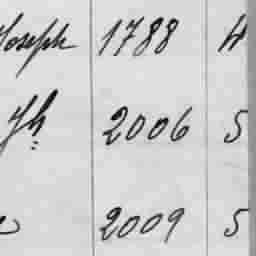 Joseph 1788 4
Jh 2006 5
2009 5